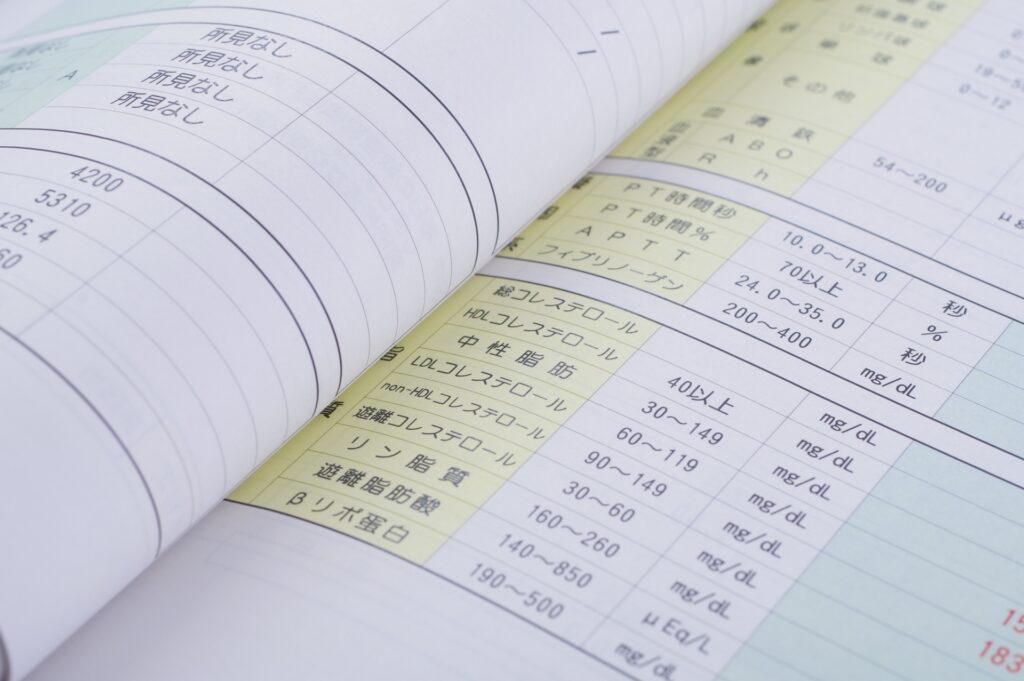 A
所見なし
所見なし
所見なし
所見なし
4200
5310
126.4
60
リンパ球
その他
血清鉄 54～200 μg
ABO
Rh
PT時間秒 10.0～13.0 秒
PT時間% 70以上 %
APTT 24.0～35.0 秒
フィブリノーゲン 200～400 mg/dL
0～12
脂
質
総コレステロール
HDLコレステロール 40以上 mg/dL
中性脂肪 30～149 mg/dL
LDLコレステロール 60～119 mg/dL
non-HDLコレステロール 90～149 mg/dL
遊離コレステロール 30～60 mg/dL
リン脂質 160～260 mg/dL
遊離脂肪酸 140～850 μEq/L
βリポ蛋白 190～500 mg/dL
15
183